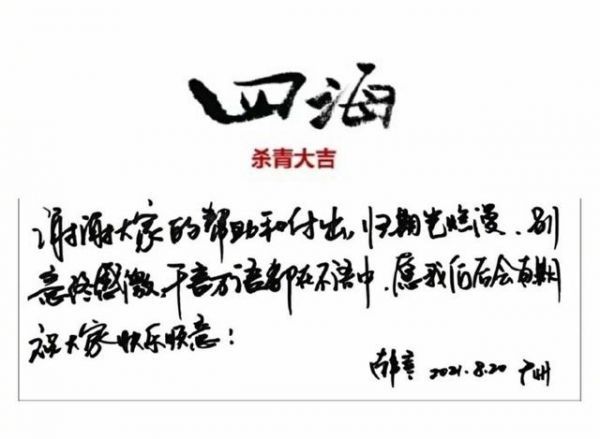 四海
杀青大吉
谢谢大家的帮助和付出,归期光临漫、别
意终感激,千言万语都在不语中,愿我们后会有期
祝大家快乐快意!
韩寒 2021.8.20 广州